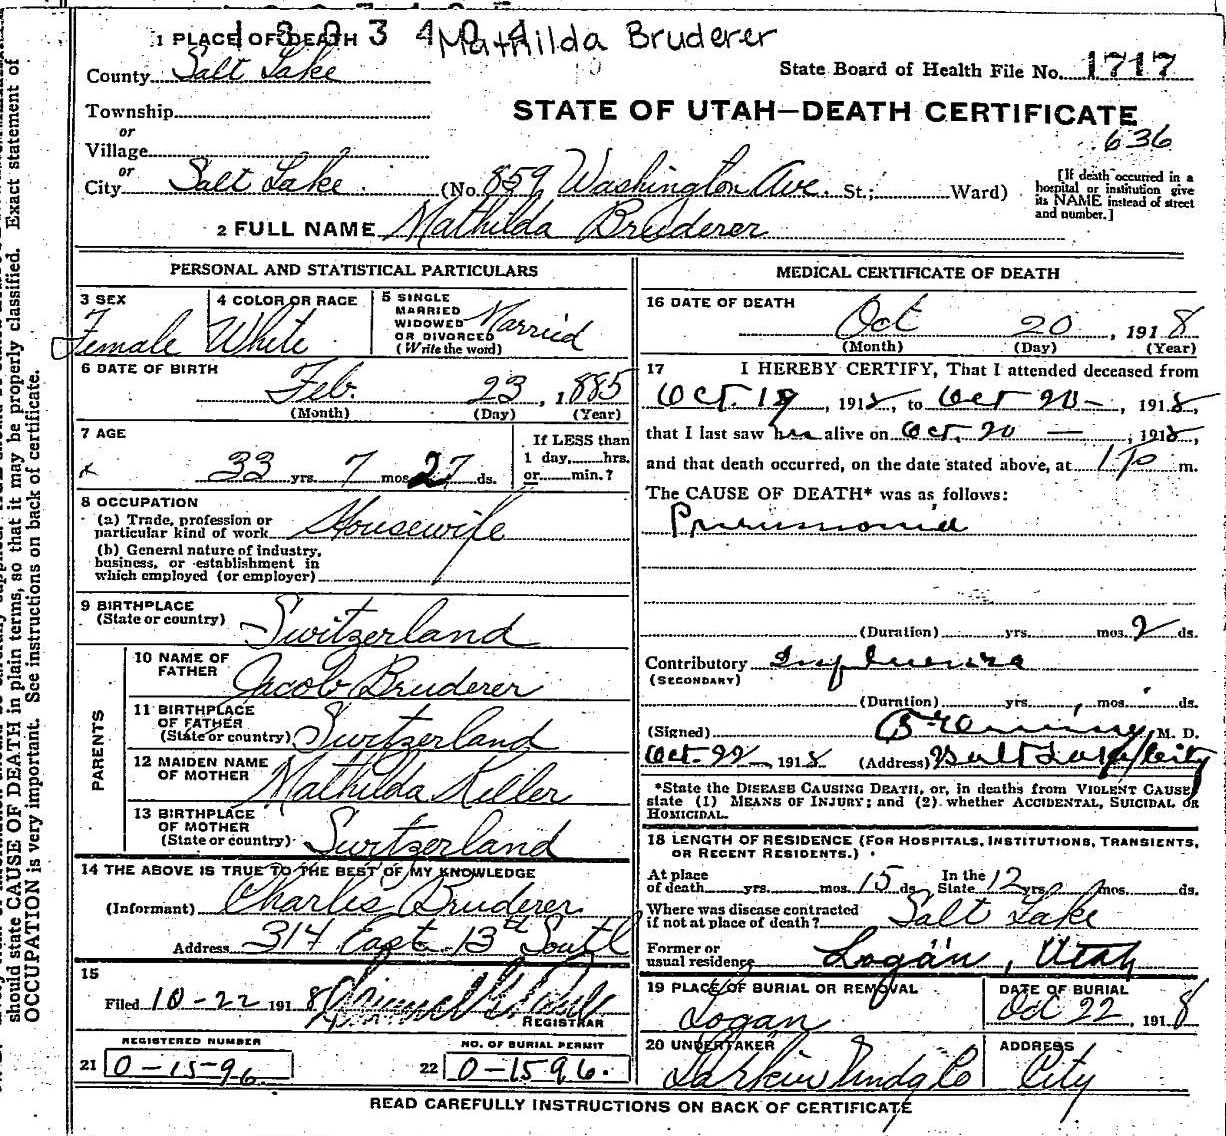 1 PLACE OF DEATH Mathilda Bruderer
County Salt Lake
State Board of Health File No. 1717
Township
STATE OF UTAH—DEATH CERTIFICATE
or
Village
636
or
City Salt Lake (No. 859 Washington Ave. St.; Ward)
[If death occurred in a hospital or institution give its NAME instead of street and number.]
2 FULL NAME Mathilda Bruderer
PERSONAL AND STATISTICAL PARTICULARS
3 SEX Female
4 COLOR OR RACE White
5 SINGLE MARRIED WIDOWED OR DIVORCED (Write the word) Married
6 DATE OF BIRTH
Feb. 23, 1885
(Month) (Day) (Year)
7 AGE
33 yrs. 7 mos. 27 ds.
If LESS than 1 day,......hrs. or......min.?
8 OCCUPATION
(a) Trade, profession or particular kind of work Housewife
(b) General nature of industry, business, or establishment in which employed (or employer)
9 BIRTHPLACE (State or country) Switzerland
PARENTS
10 NAME OF FATHER Jacob Bruderer
11 BIRTHPLACE OF FATHER (State or country) Switzerland
12 MAIDEN NAME OF MOTHER Mathilda Keller
13 BIRTHPLACE OF MOTHER (State or country) Switzerland
14 THE ABOVE IS TRUE TO THE BEST OF MY KNOWLEDGE
(Informant) Charlis Bruderer
Address 314 East 13th South
15
Filed 10-22 1918
REGISTRAR
REGISTERED NUMBER
21 0-1596.
NO. OF BURIAL PERMIT
22 0-1596.
MEDICAL CERTIFICATE OF DEATH
16 DATE OF DEATH
Oct 20, 1918
(Month) (Day) (Year)
17 I HEREBY CERTIFY, That I attended deceased from
Oct. 19, 1918, to Oct 20-, 1918,
that I last saw her alive on Oct. 20 —, 1918,
and that death occurred, on the date stated above, at m.
The CAUSE OF DEATH* was as follows:
Pneumonia
(Duration) yrs. mos. 2 ds.
Contributory Influenza
(SECONDARY)
(Duration) yrs. mos. ds.
(Signed) M. D.
Oct. 22, 1918 (Address) Salt Lake City
*State the DISEASE CAUSING DEATH, or, in deaths from VIOLENT CAUSE, state (1) MEANS OF INJURY; and (2) whether ACCIDENTAL, SUICIDAL OR HOMICIDAL.
18 LENGTH OF RESIDENCE (FOR HOSPITALS, INSTITUTIONS, TRANSIENTS, OR RECENT RESIDENTS.)
At place of death yrs. mos. 15 ds. In the State 12 yrs. mos. ds.
Where was disease contracted if not at place of death? Salt Lake
Former or usual residence Logan, Utah
19 PLACE OF BURIAL OR REMOVAL Logan
DATE OF BURIAL Oct 22, 1918
20 UNDERTAKER Larkin Undg Co
ADDRESS City
READ CAREFULLY INSTRUCTIONS ON BACK OF CERTIFICATE
should state CAUSE OF DEATH in plain terms, so that it may be properly classified. Exact statement of
OCCUPATION is very important. See instructions on back of certificate.